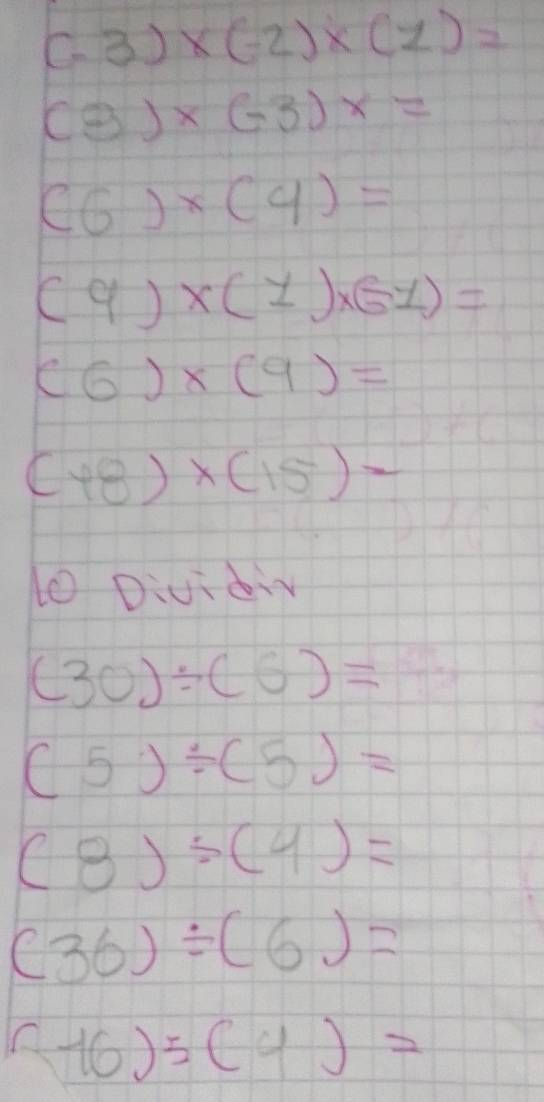 (-3)×(-2)×(1)=
(8)×(-3)×=
(6)×(4)=
(9)×(1)×(-1)=
(6)×(9)=
(+8)×(15)-
10 Dividir
(30)÷(6)=
(5)÷(5)=
(8)÷(4)=
(36)÷(6)=
(+16)÷(4)=